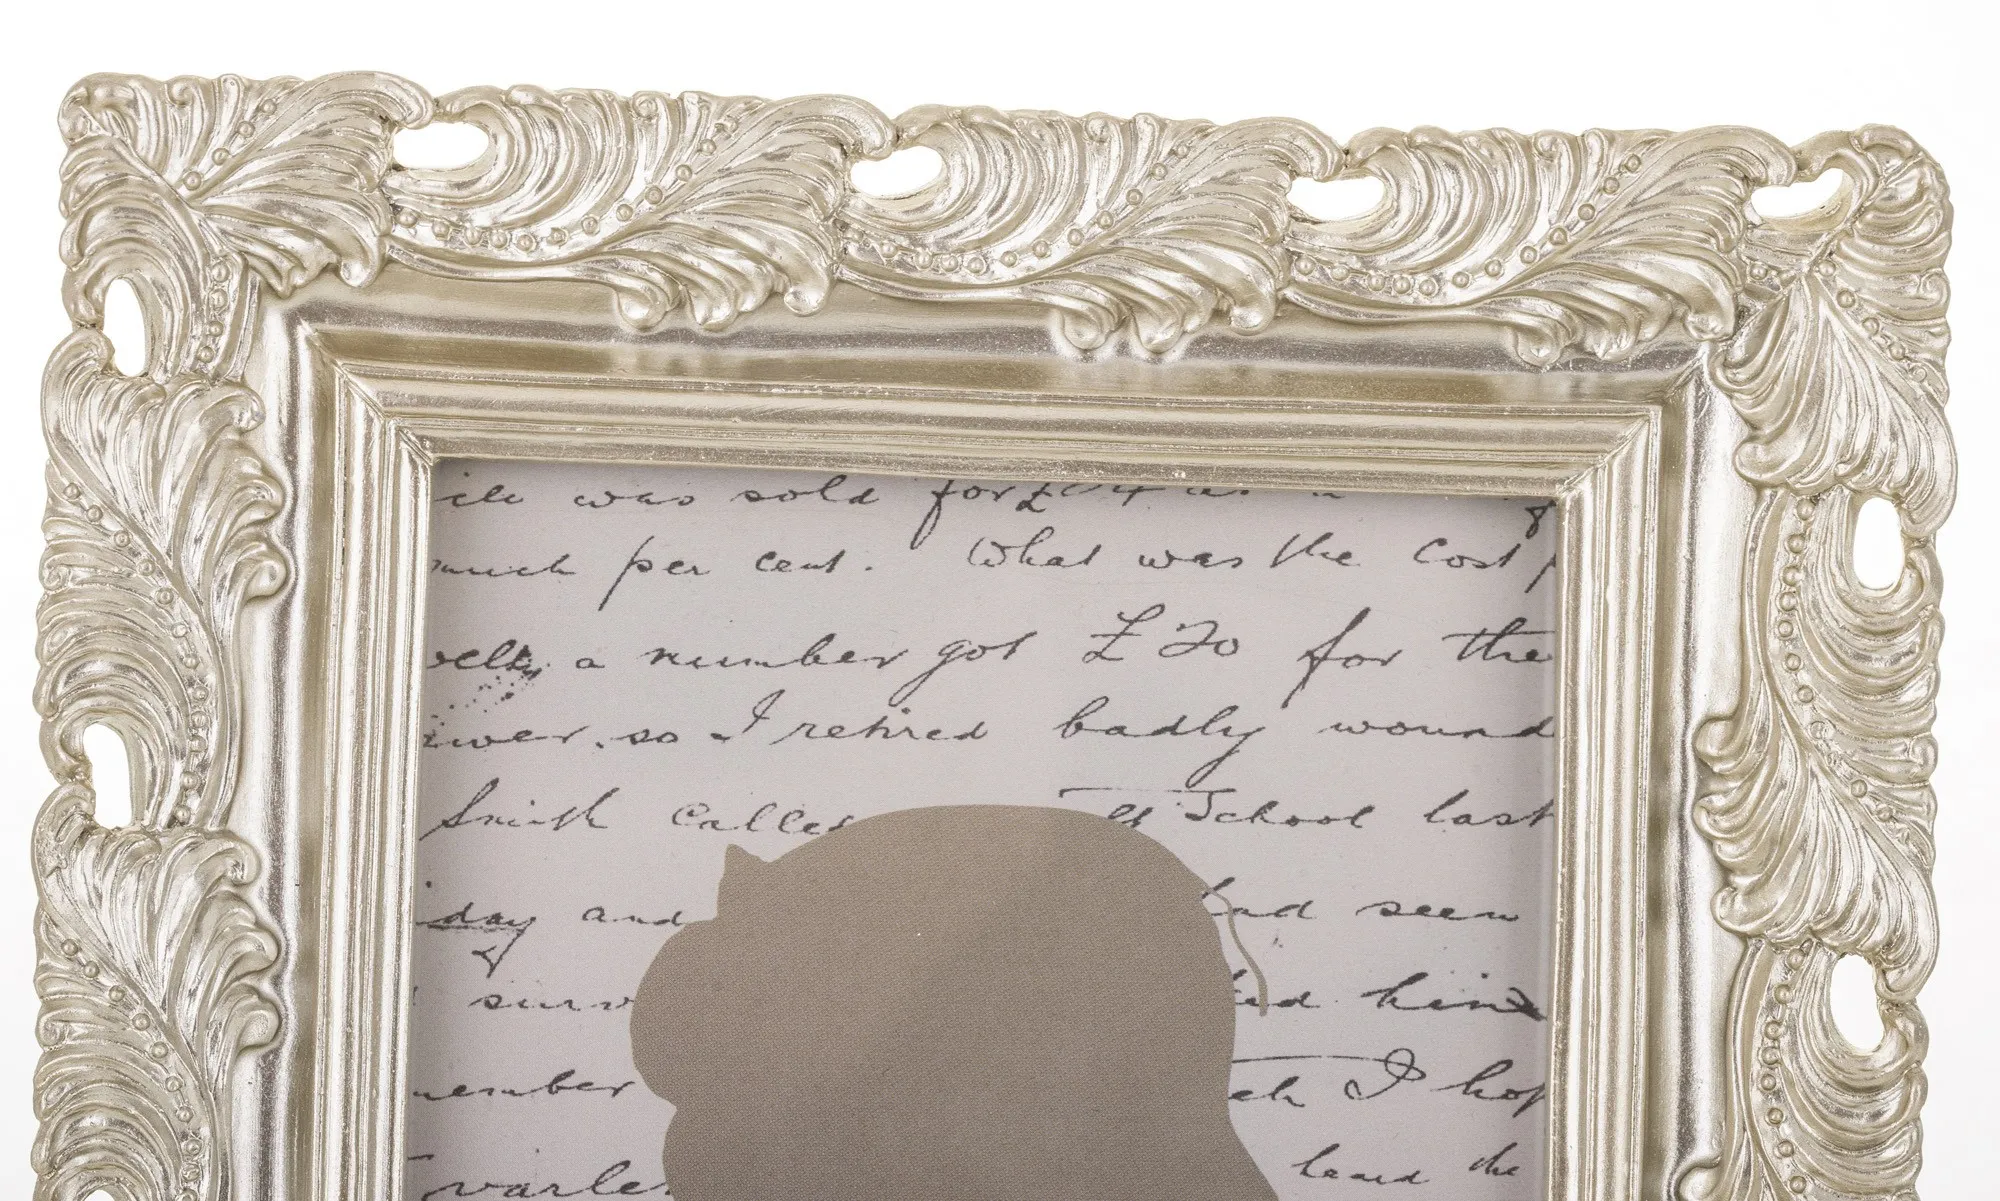 was sold for £
much per cent. What was the cost
a number got £20 for the
so I retired badly wound
Smith called School last
day and had seen
surv ed him
member ch I hop
heard the